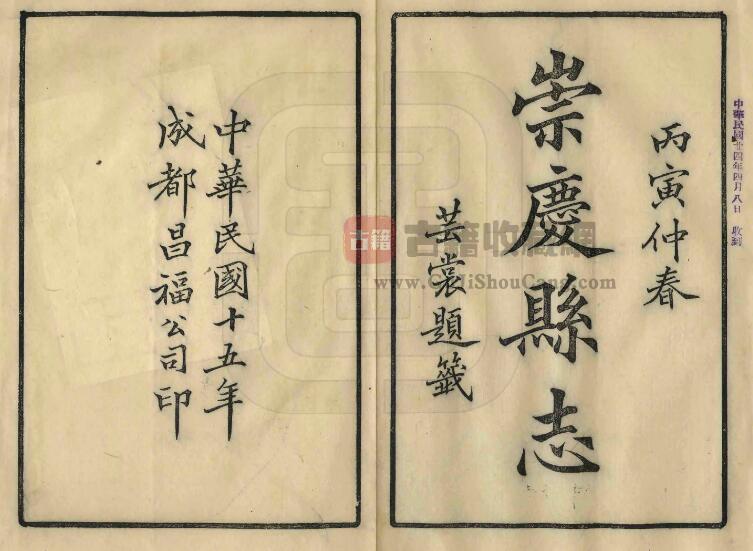 中華民國廿四年四月八日 收到
丙寅仲春
崇慶縣志
芸裳題籤
中華民國十五年
成都昌福公司印
古籍 古籍收藏網
www.GuJiShouCang.com